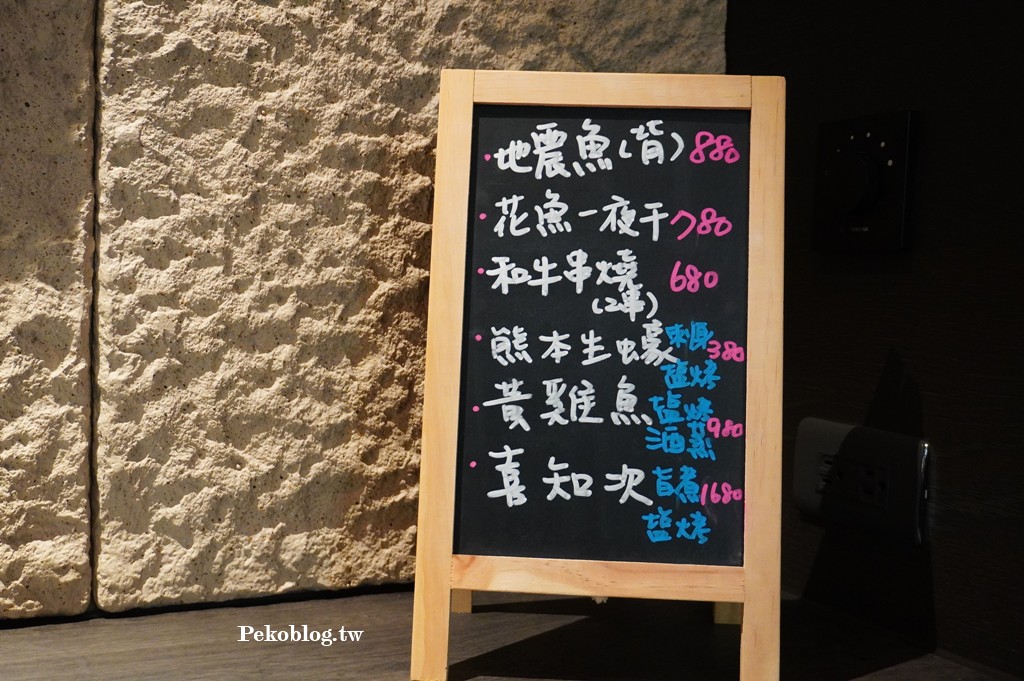 ·地震魚(背) 880
·花魚一夜干 780
·和牛串燒 680
(2串)
·熊本生蠔 刺身 380
鹽烤
·黃雞魚 鹽烤 980
酒蒸
·喜知次 旨煮 1680
鹽烤
Pekoblog.tw